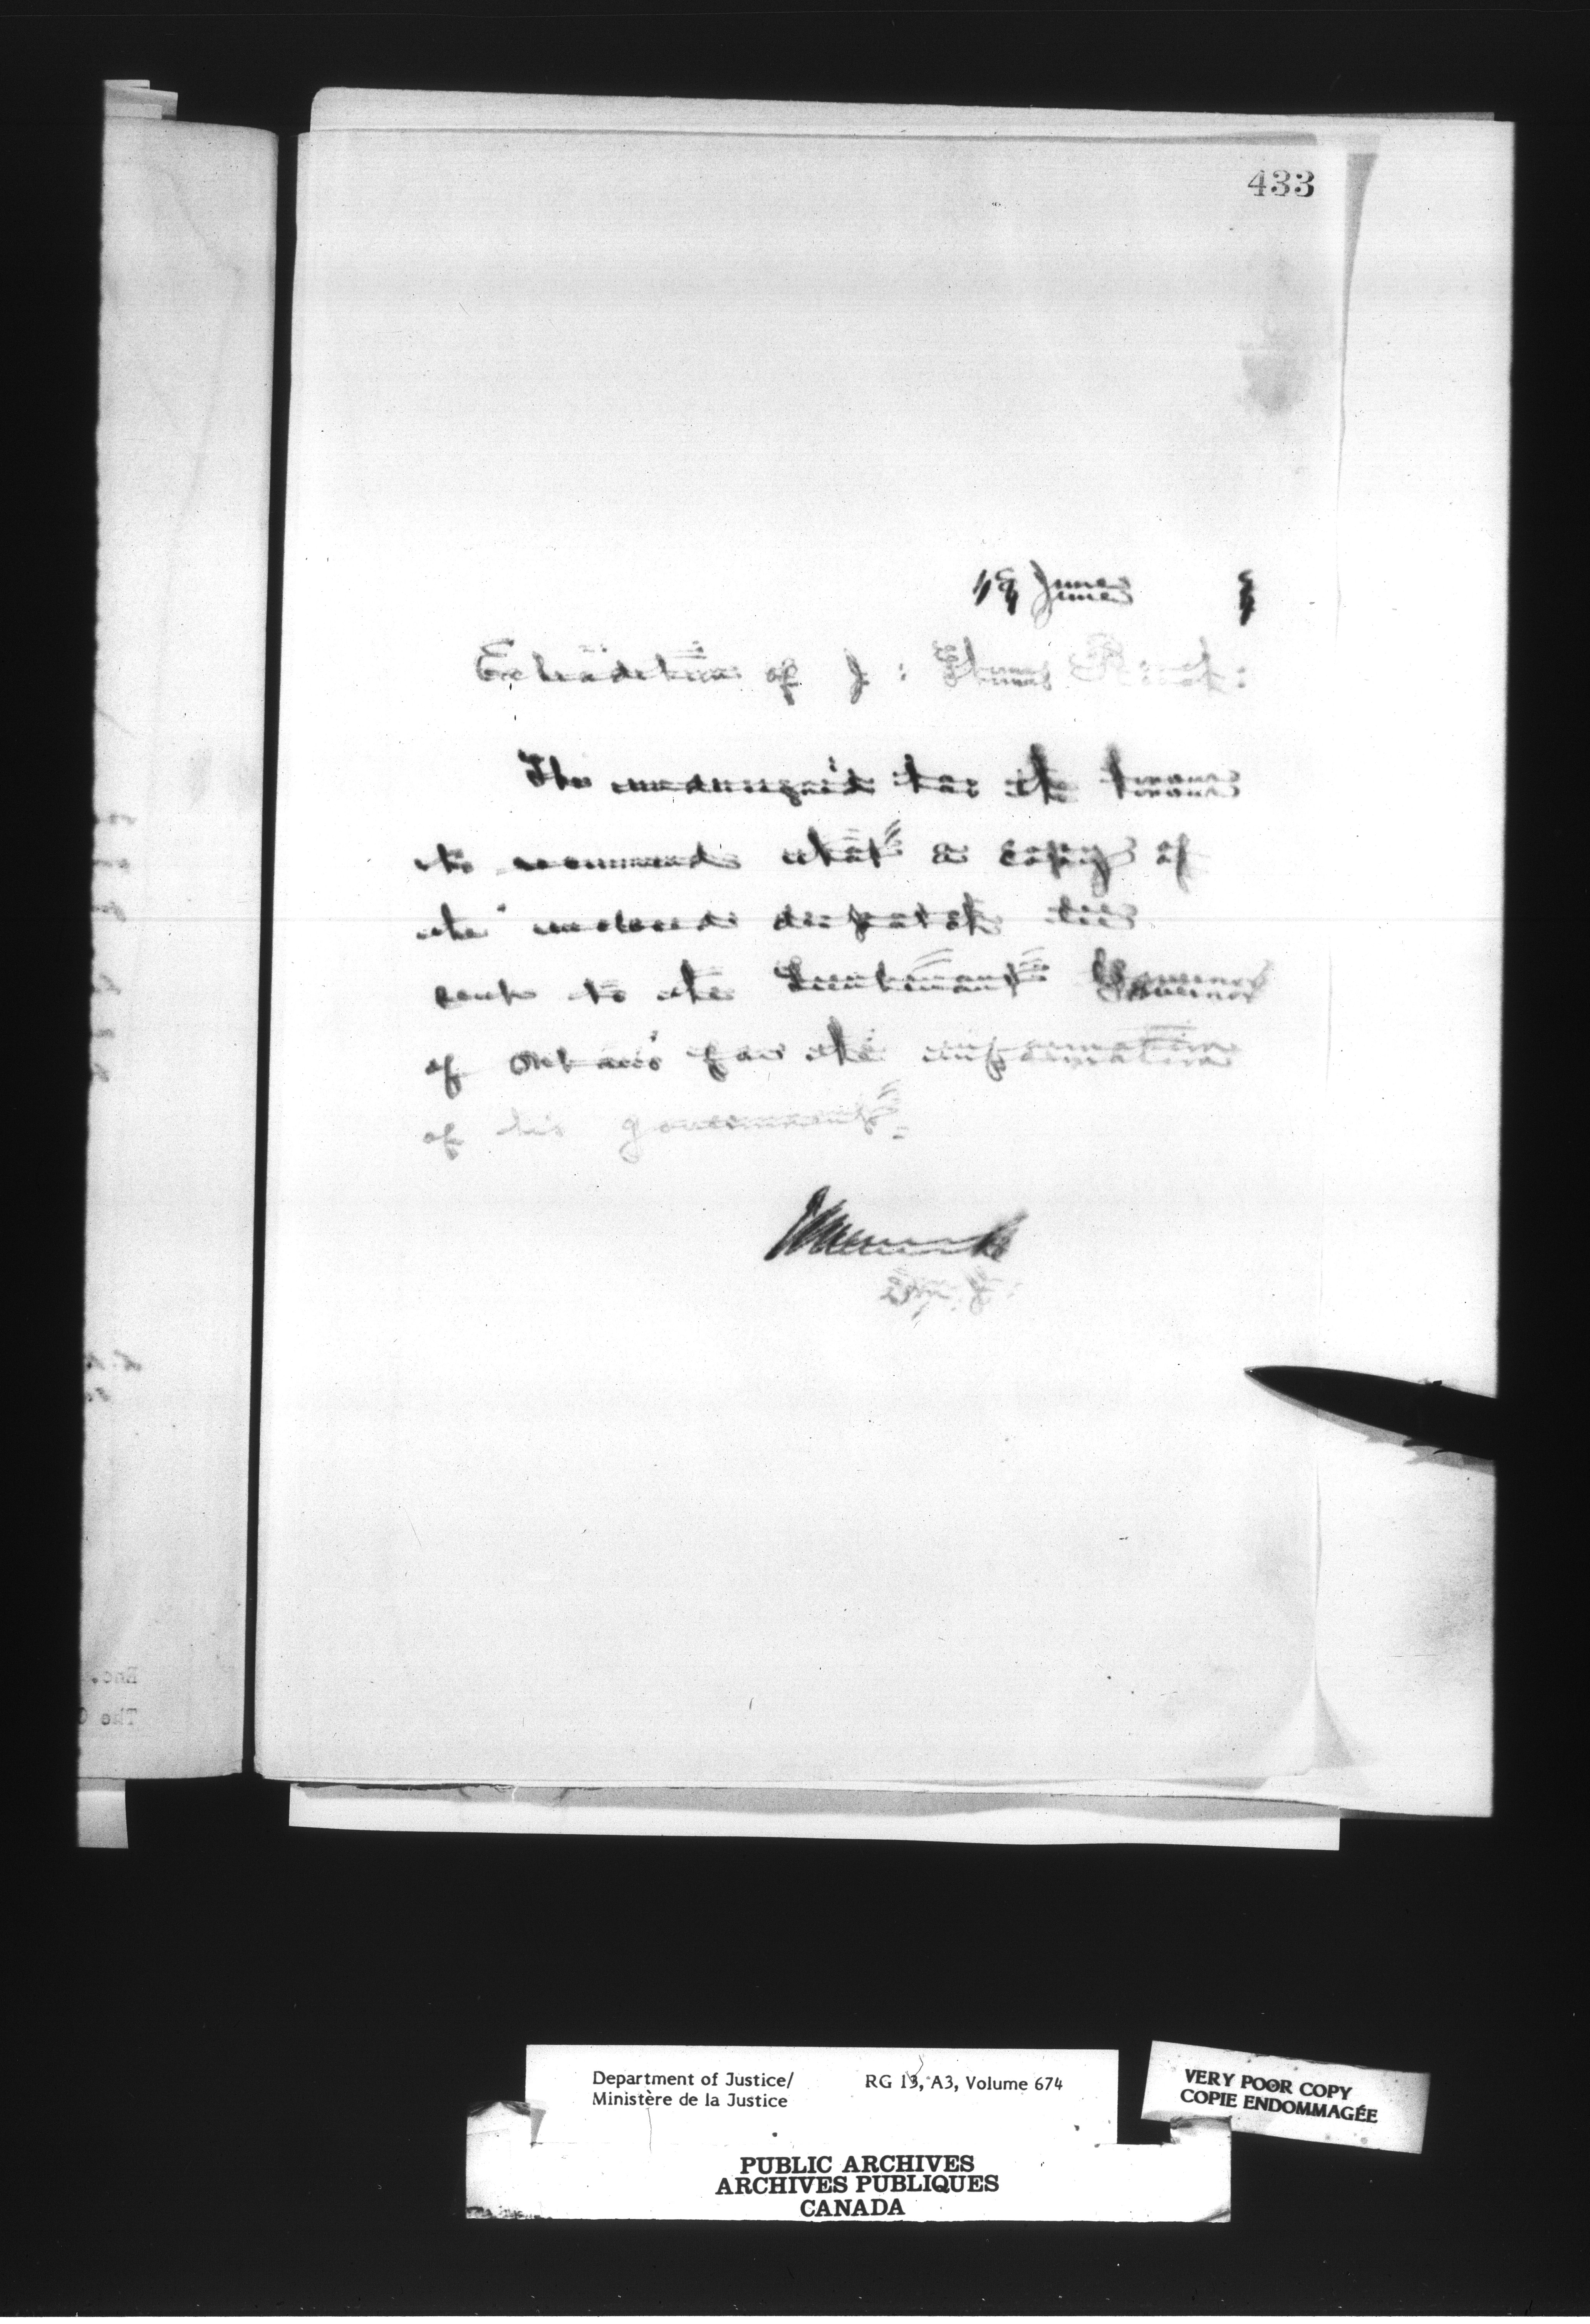 433
19 June 9
Extradition of J: Thomas
The undersig'd has the honour
to recommend that a copy of
the enclosed despatch be
sent to the Lieutenant Governor
of Ontario for the information
of his government.
Department of Justice/ RG 13, A3, Volume 674
Ministère de la Justice
VERY POOR COPY
COPIE ENDOMMAGÉE
PUBLIC ARCHIVES
ARCHIVES PUBLIQUES
CANADA
Enc.
The